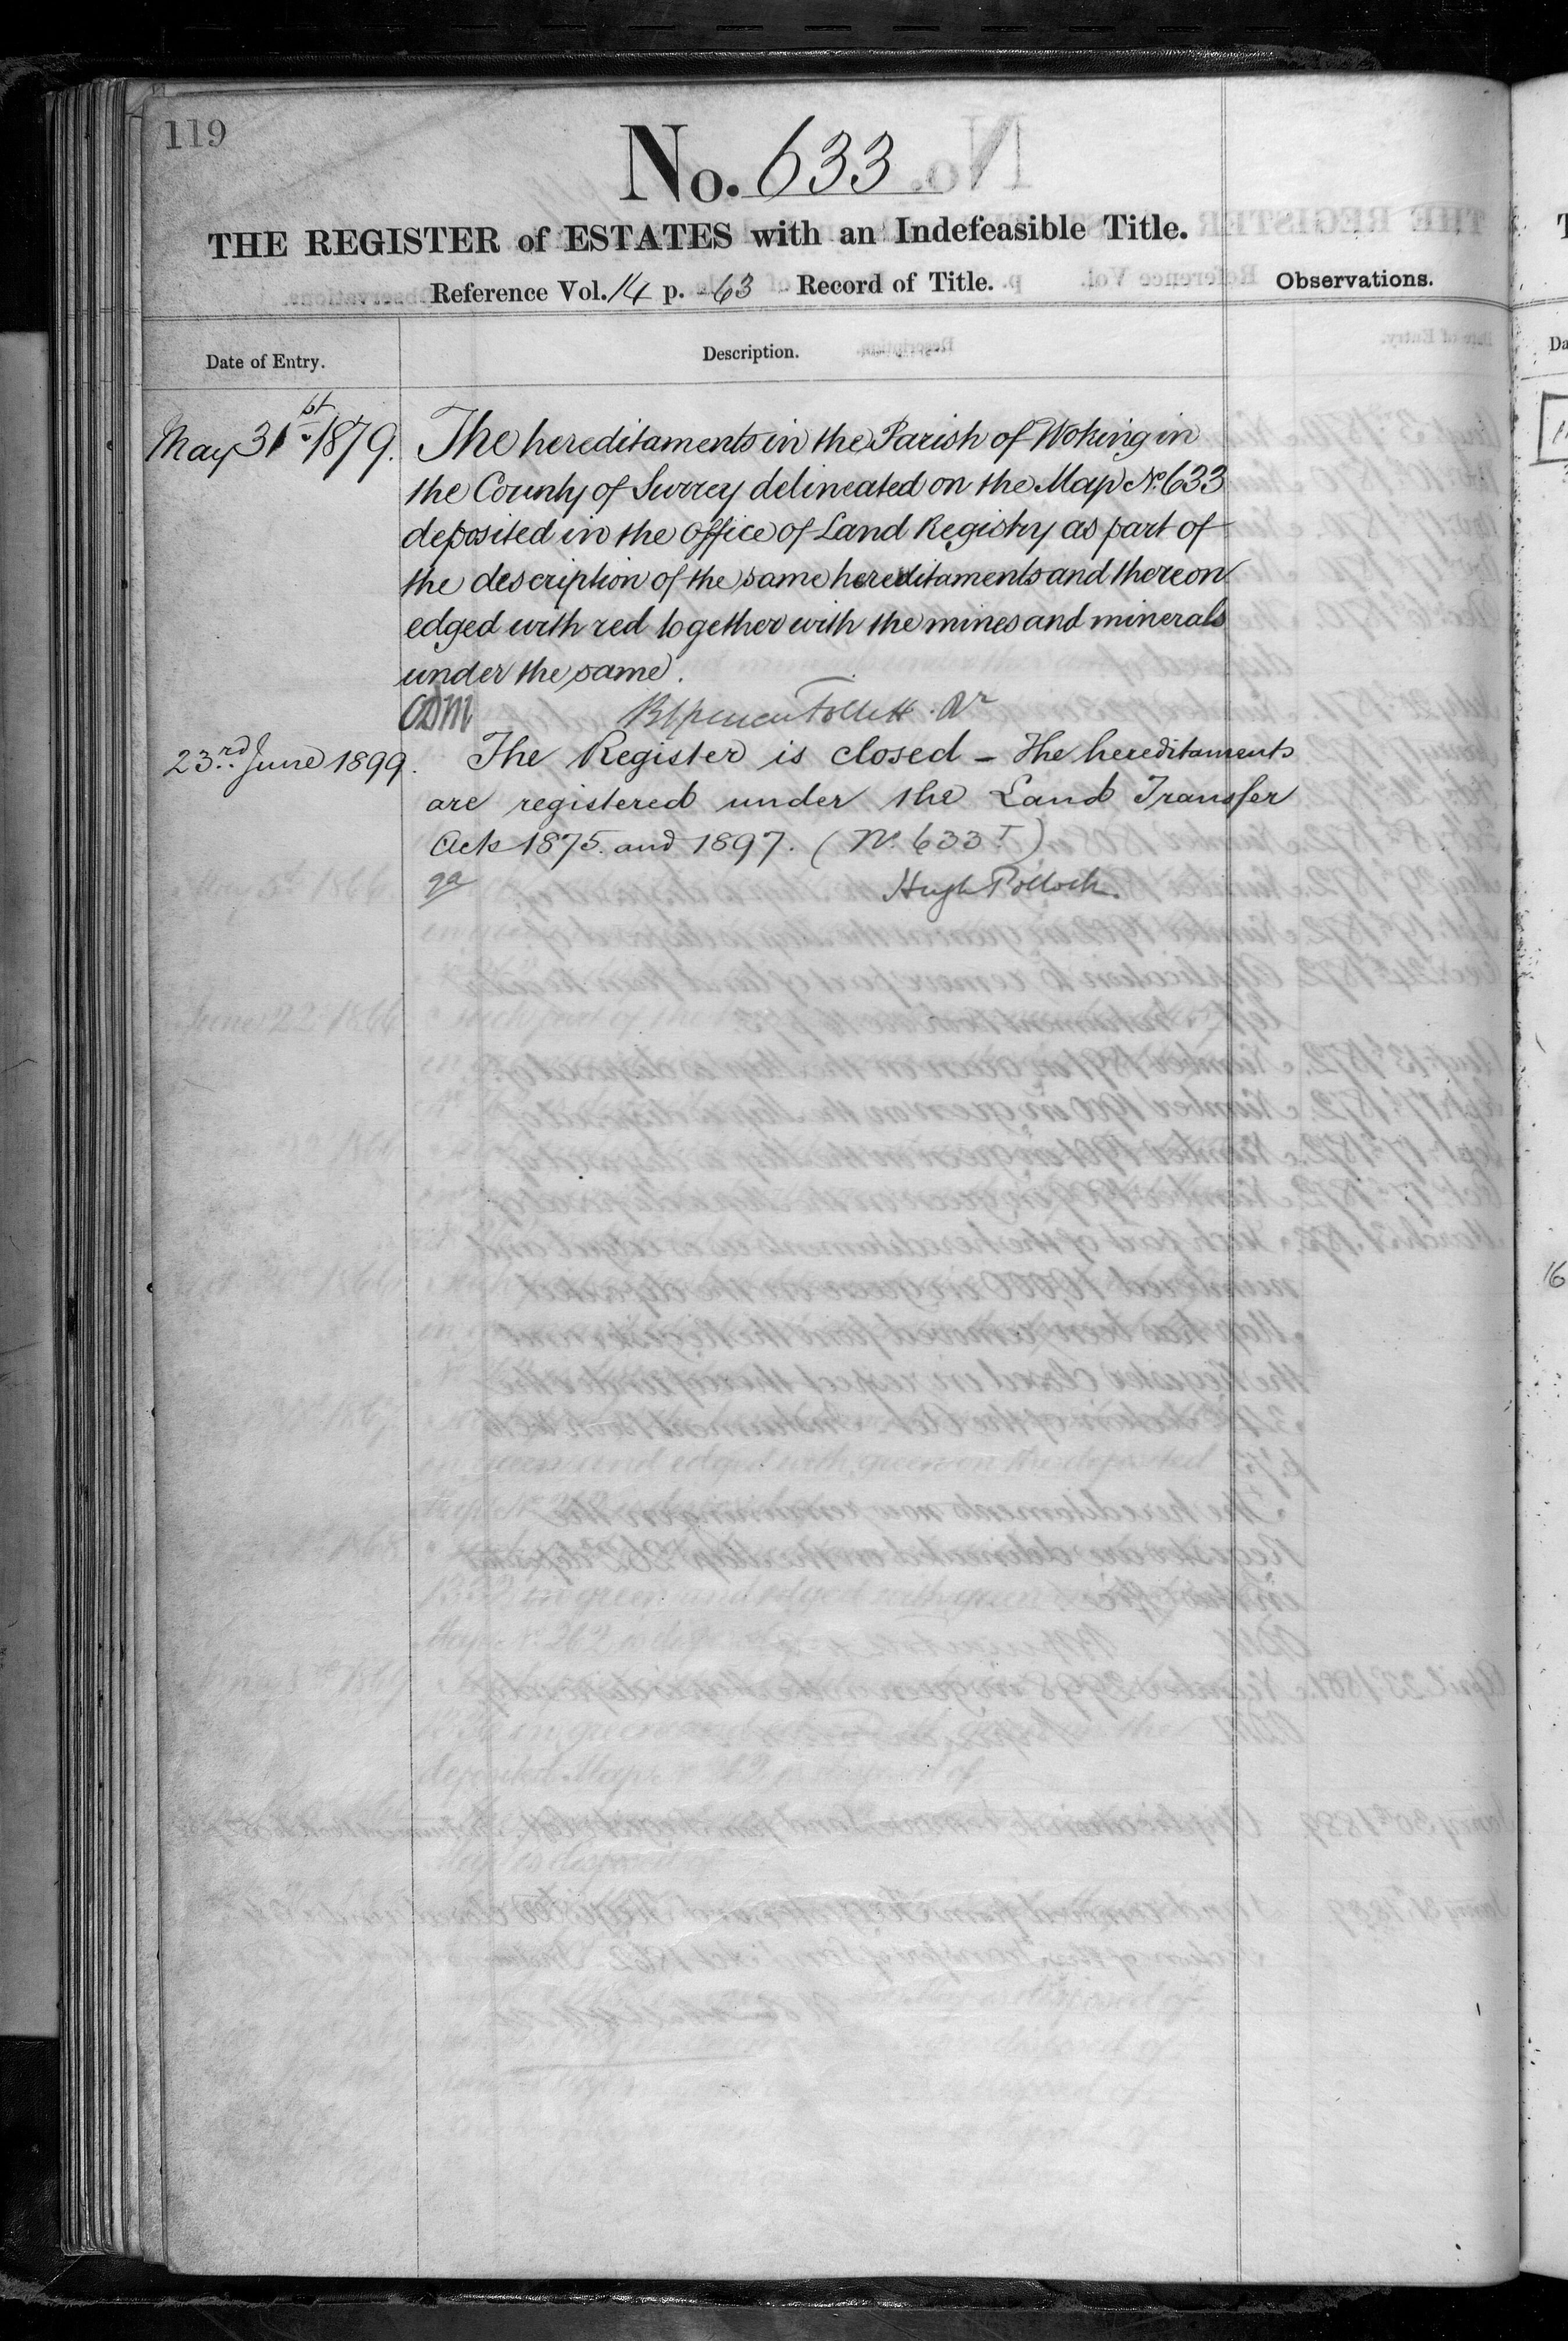 119
No. 633
THE REGISTER of ESTATES with an Indefeasible Title.
Reference Vol. 14 p. 63 Record of Title.
Observations.
Date of Entry.
Description.
May 31st 1879. The hereditaments in the Parish of Woking in
the County of Surrey delineated on the Map No. 633
deposited in the office of Land Registry as part of
the description of the same hereditaments and thereon
edged with red together with the mines and minerals
under the same.
CDM
23rd June 1899. The Register is closed - The hereditaments
are registered under the Land Transfer
Acts 1875 and 1897. (No. 633 T)
Hugh Pollock.